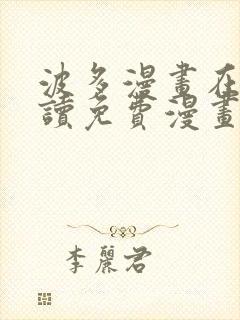 波多漫畫在
讀免費漫畫
李麗君